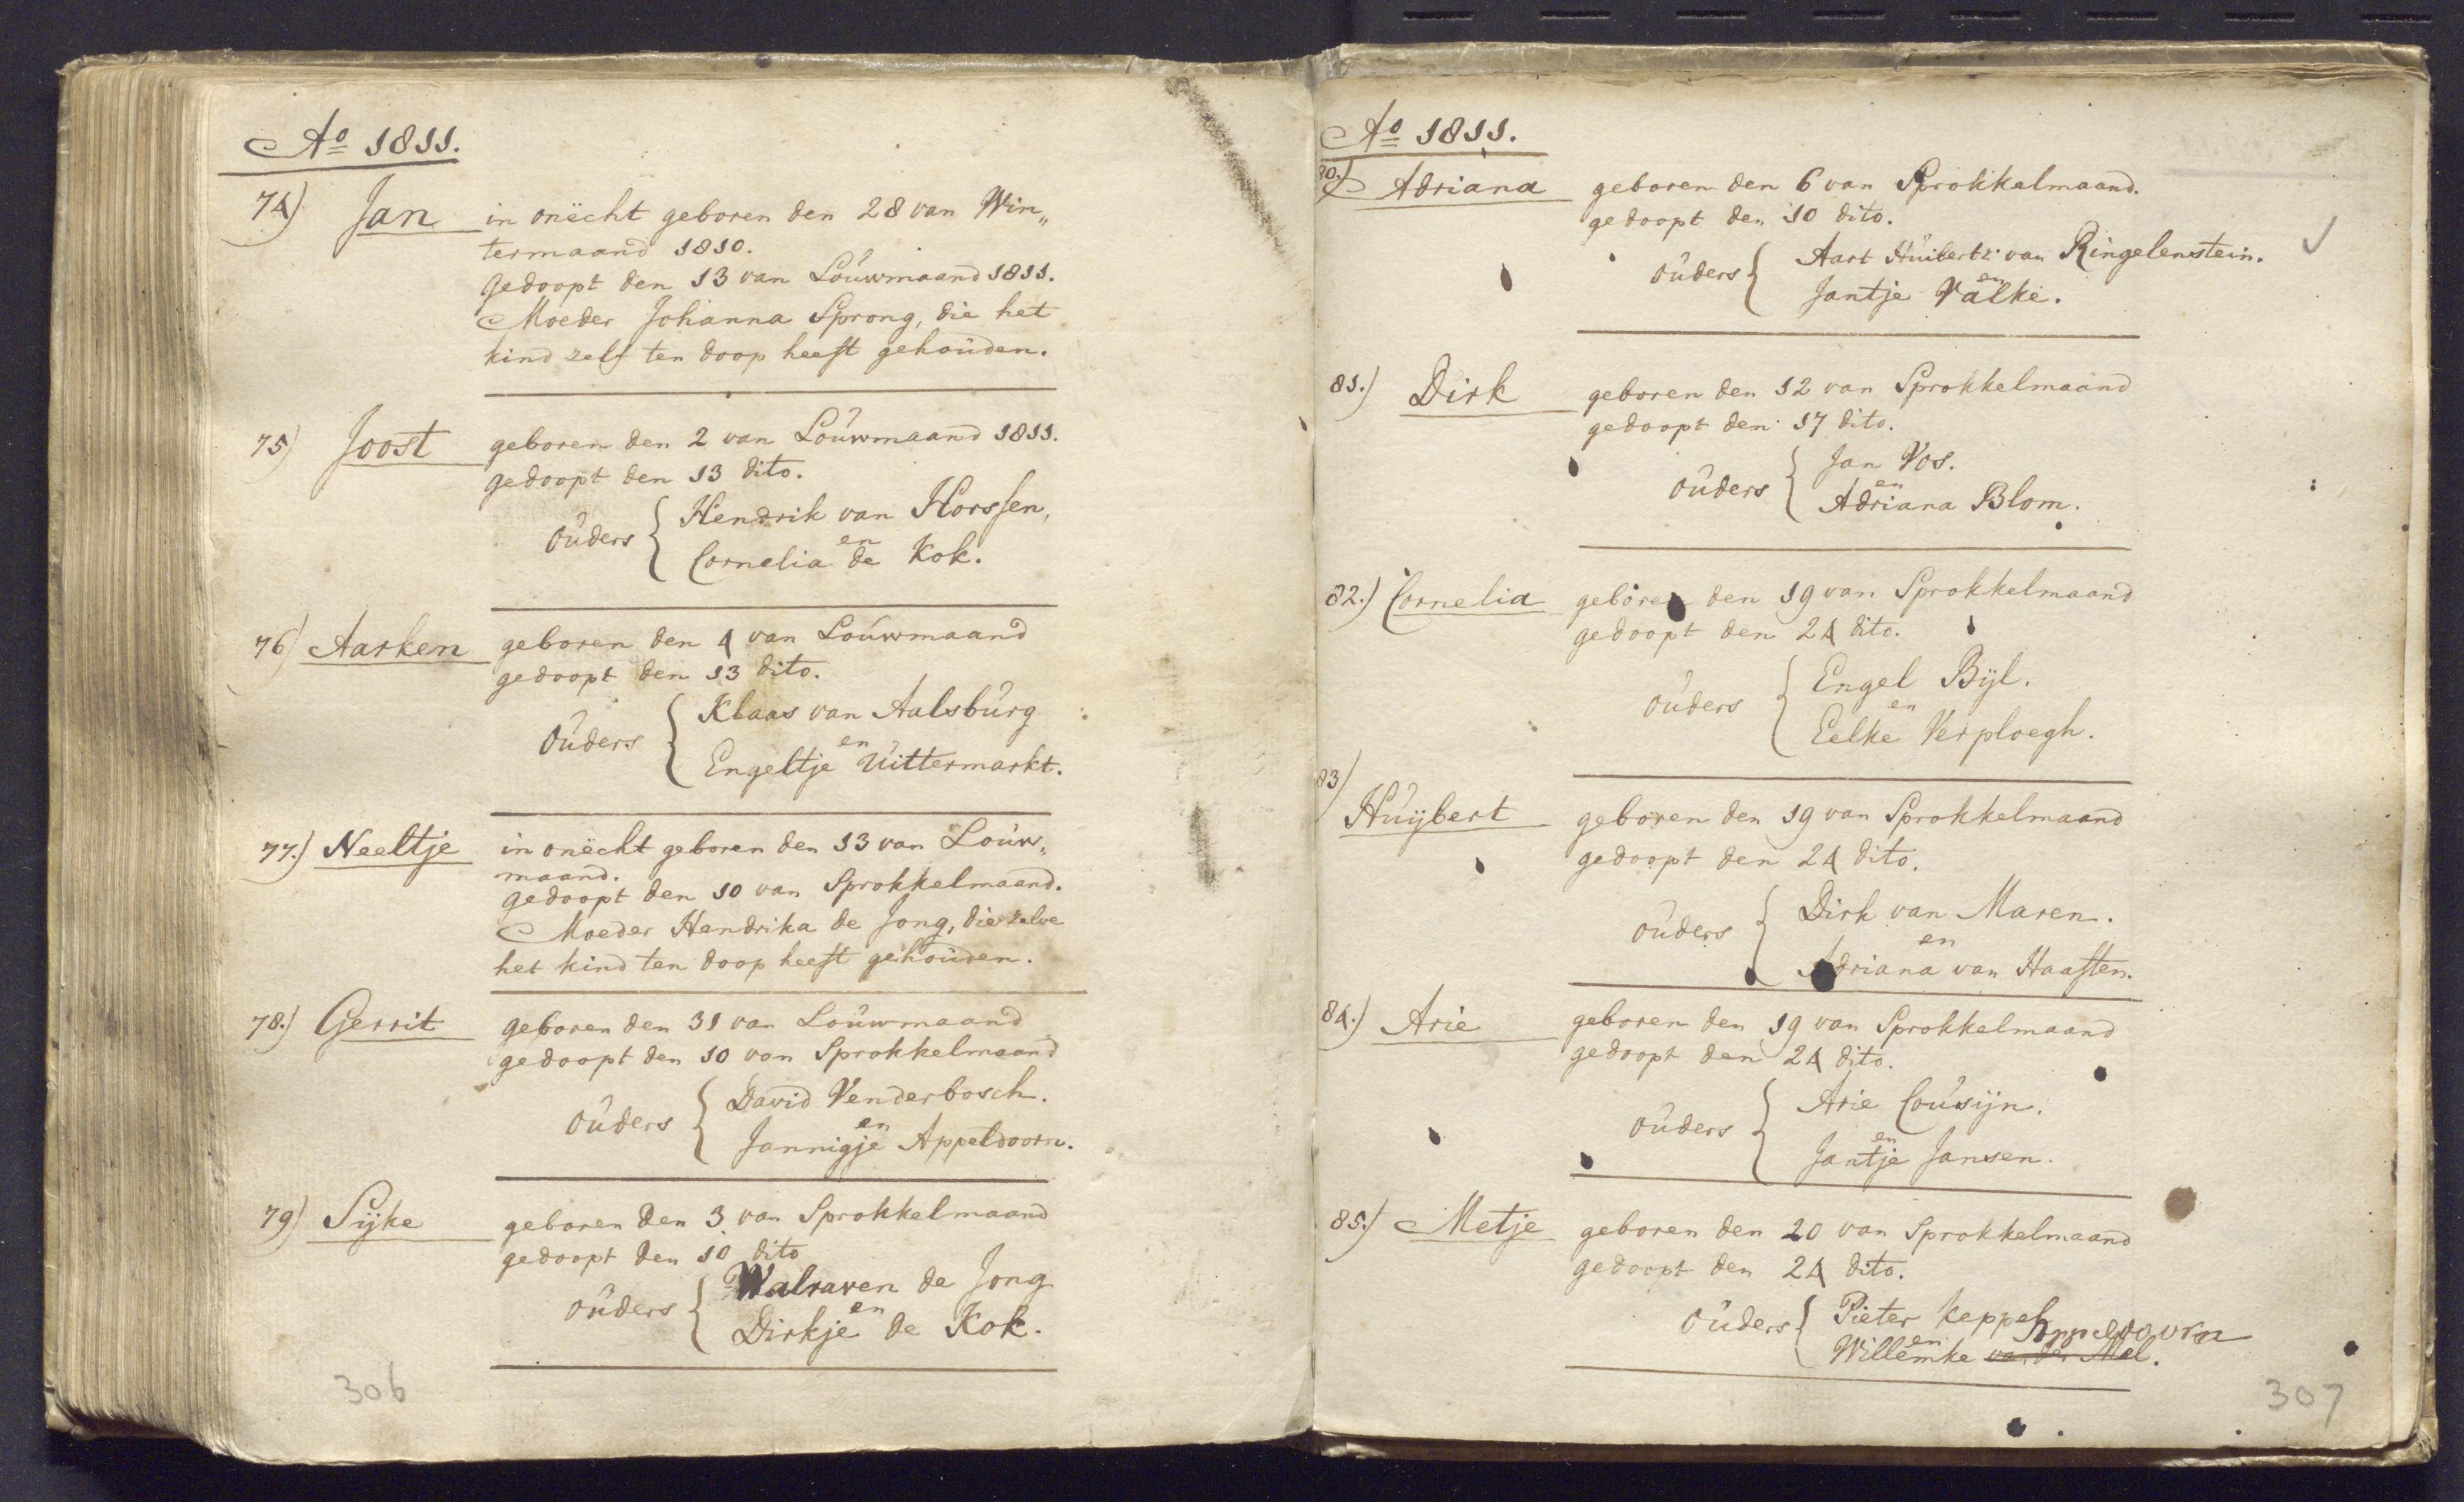 Ao 1811.
74) Jan in onëcht geboren den 28 van Win„
termaand 1810.
Gedoopt den 13 van Louwmaand 1811.
Moeder Johanna Sprong, die het
kind zelf ten doop heeft gehouden.
75) Joost geboren den 2 van Louwmaand 1811.
gedoopt den 13 dito.
Ouders { Hendrik van Horssen,
en
Cornelia de Kok.
76) Aarken geboren den 4 van Louwmaand
gedoopt den 13 dito.
Ouders { Klaas van Aalsburg
en
Engeltje Uittermarkt.
77.) Neeltje in onëcht geboren den 13 van Louw„
maand.
gedoopt den 10 van Sprokkelmaand.
Moeder Hendrika de Jong, die zelve
het kind ten doop heeft gehouden.
78.) Gerrit geboren den 31 van Louwmaand
gedoopt den 10 van Sprokkelmaand
Ouders { David Venderbosch.
en
Jannigje Appeldoorn.
79) Sijke geboren den 3 van Sprokkelmaand
gedoopt den 10 dito
Ouders { Walraven de Jong
en
Dirkje de Kok.
306
Ao 1811.
80.) Adriana geboren den 6 van Sprokkelmaand.
gedoopt den 10 dito.
Ouders { Aart Huibertz: van Ringelenstein.
en
Jantje Valke.
81.) Dirk geboren den 12 van Sprokkelmaand
gedoopt den 17 dito.
Ouders { Jan Vos.
en
Adriana Blom.
82.) Cornelia geboren den 19 van Sprokkelmaand
gedoopt den 24 dito.
Ouders { Engel Bijl.
en
Eelke Verploegh.
83)
Huijbert geboren den 19 van Sprokkelmaand
gedoopt den 24 dito.
Ouders { Dirk van Maren.
en
Adriana van Haaften.
84.) Arie geboren den 19 van Sprokkelmaand
gedoopt den 24 dito.
Ouders { Arie Cousijn.
en
Jantje Jansen.
85.) Metje geboren den 20 van Sprokkelmaand
gedoopt den 24 dito.
Ouders { Pieter Keppel
en Appeldoorn
Willemke van der Mel.
307